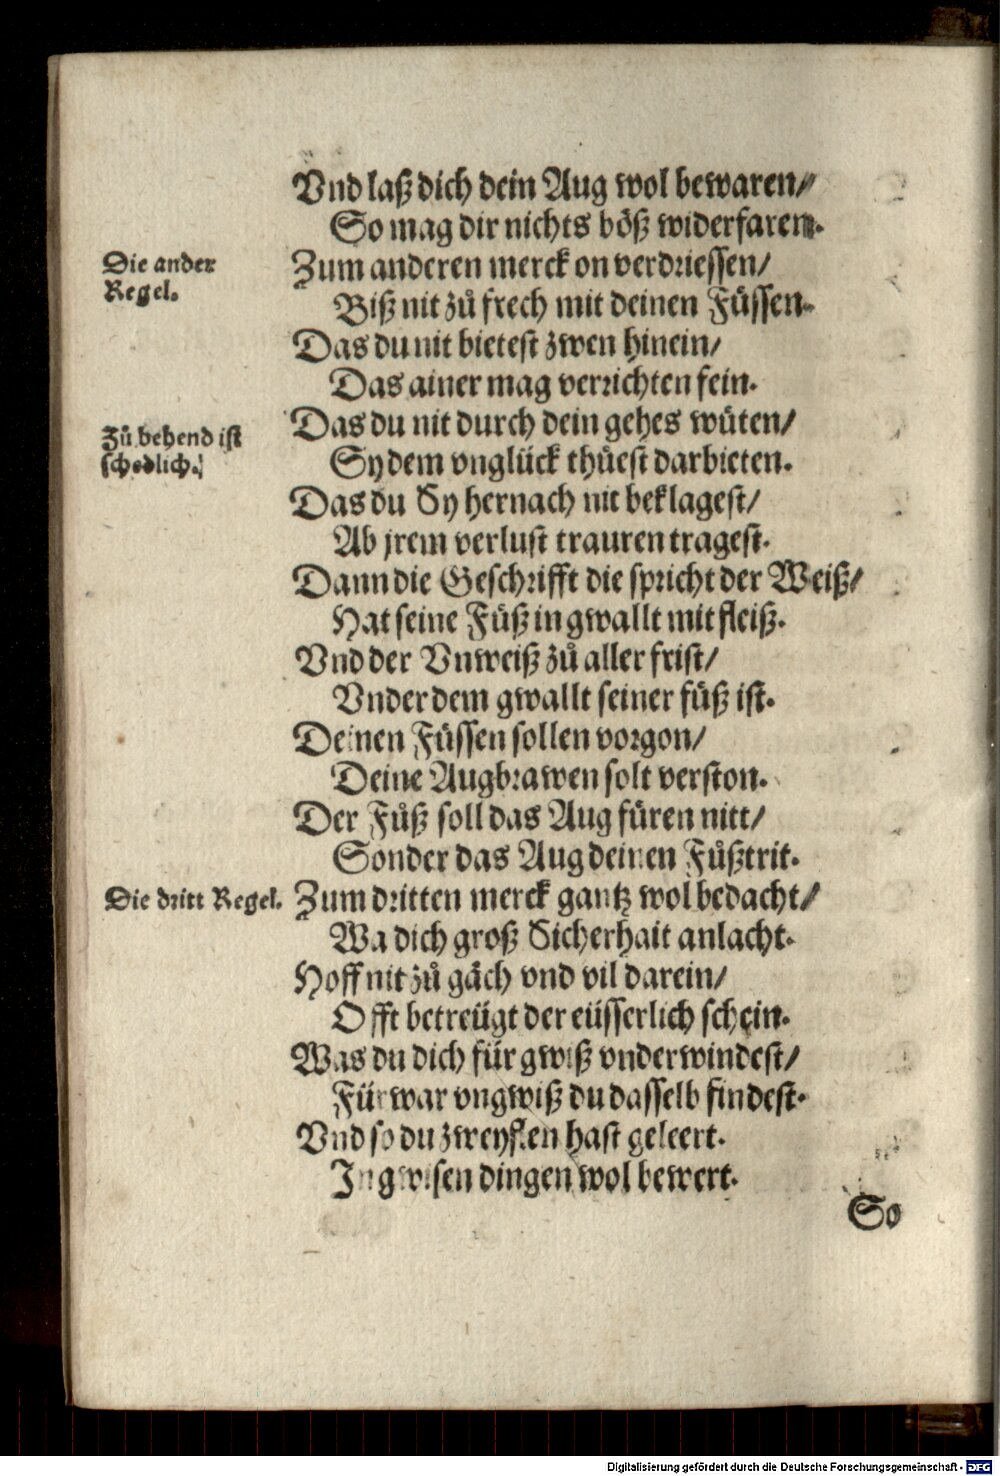 Vnd laß dich dein Aug wol bewaren/
So mag dir nichts böß widerfaren.
Die ander
Regel.
Zum anderen merck on verdriessen/
Biß nit zů frech mit deinen Füssen.
Das du nit bietest zwen hinein/
Das ainer mag verrichten fein.
Zů behend ist
schedlich.
Das du nit durch dein gehes wüten/
Sy dem vnglück thüest darbieten.
Das du Sy hernach nit beklagest/
Ab jrem verlust trauren tragest.
Dann die Geschrifft die spricht der Weiß/
Hat seine Füß in gwallt mit fleiß.
Vnd der Vnweiß zů aller frist/
Vnder dem gwallt seiner füß ist.
Deinen Füssen sollen vorgon/
Deine Augbrawen solt verston.
Der Fůß soll das Aug füren nitt/
Sonder das Aug deinen Fůßtrit.
Die dritt Regel.
Zum dritten merck gantz wol bedacht/
Wa dich groß Sicherhait anlacht.
Hoff nit zů gäch vnd vil darein/
Offt betreügt der eüsserlich schein.
Was du dich für gwiß vnderwindest/
Fürwar vngwiß du dasselb findest.
Vnd so du zweyflen hast geleert.
In gwisen dingen wol bewert.
So
Digitalisierung gefördert durch die Deutsche Forschungsgemeinschaft - DFG